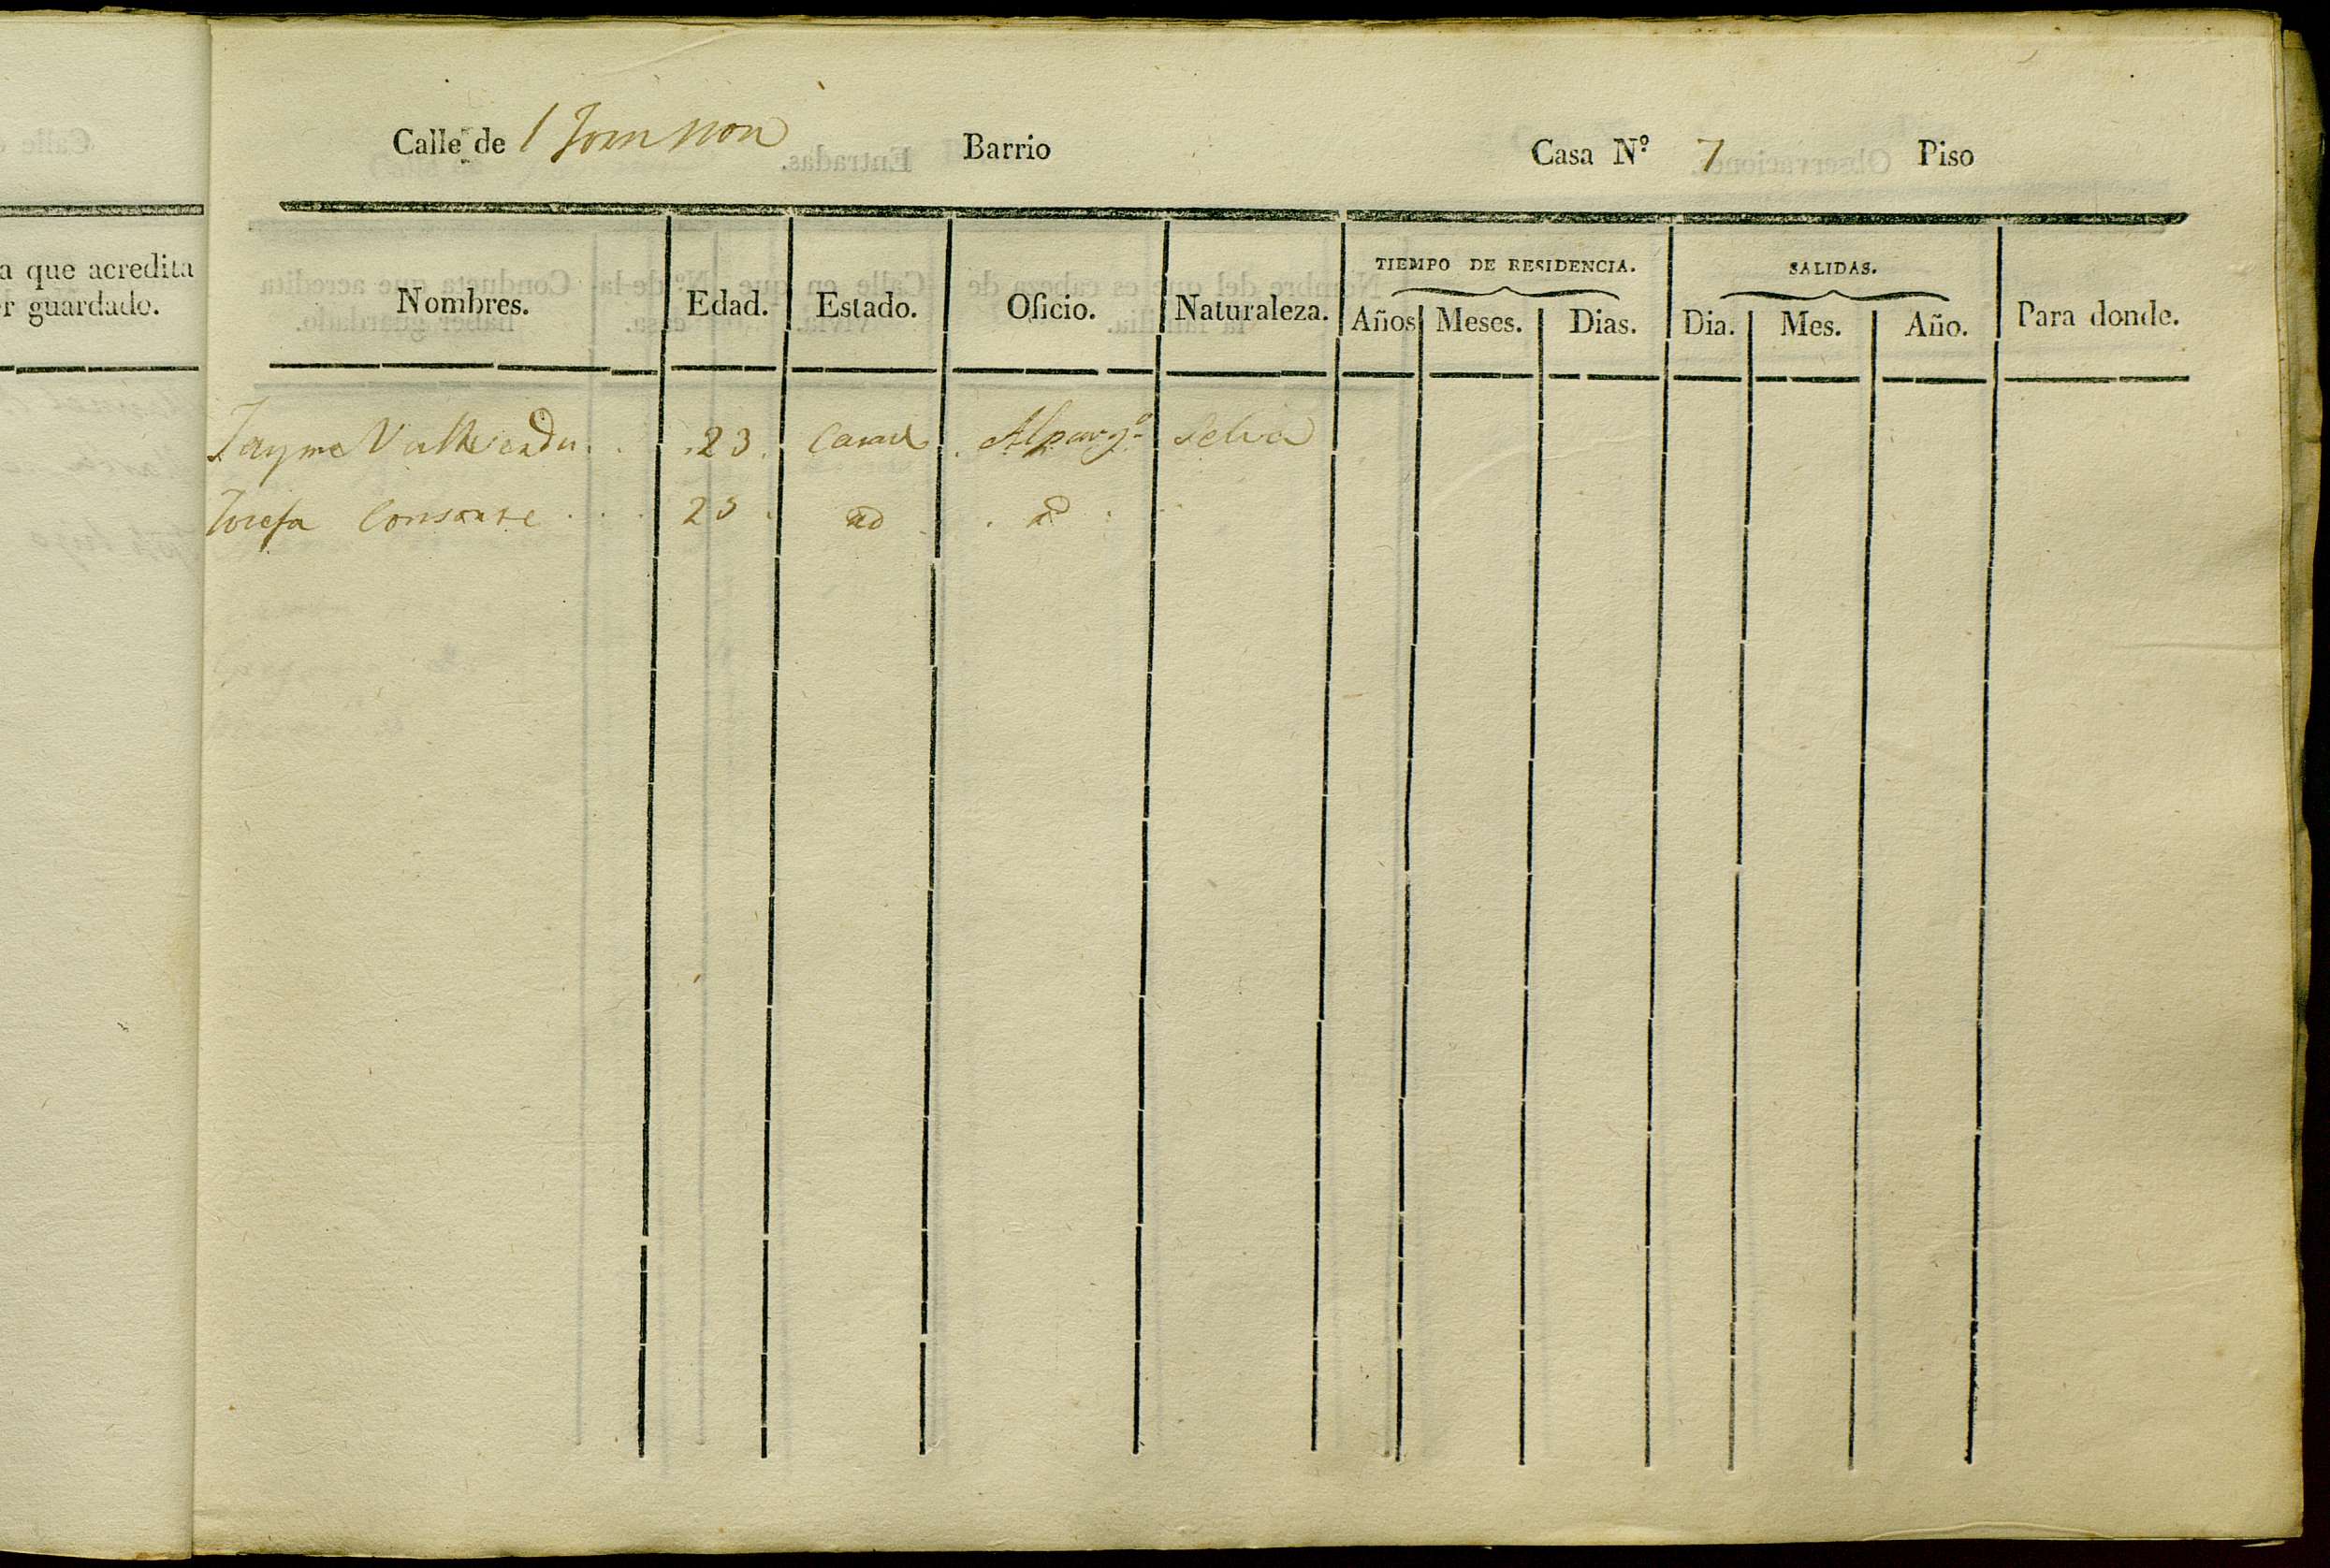 a que acredita
r guardado.
Calle de Barrio Casa Nº 7 Piso
Nombres. Edad. Estado. Oficio. Naturaleza. TIEMPO DE RESIDENCIA. Años Meses. Dias. SALIDAS. Dia. Mes. Año. Para donde.
Jayme 23. Casad Alparg.º Selva
Josefa 23 id id